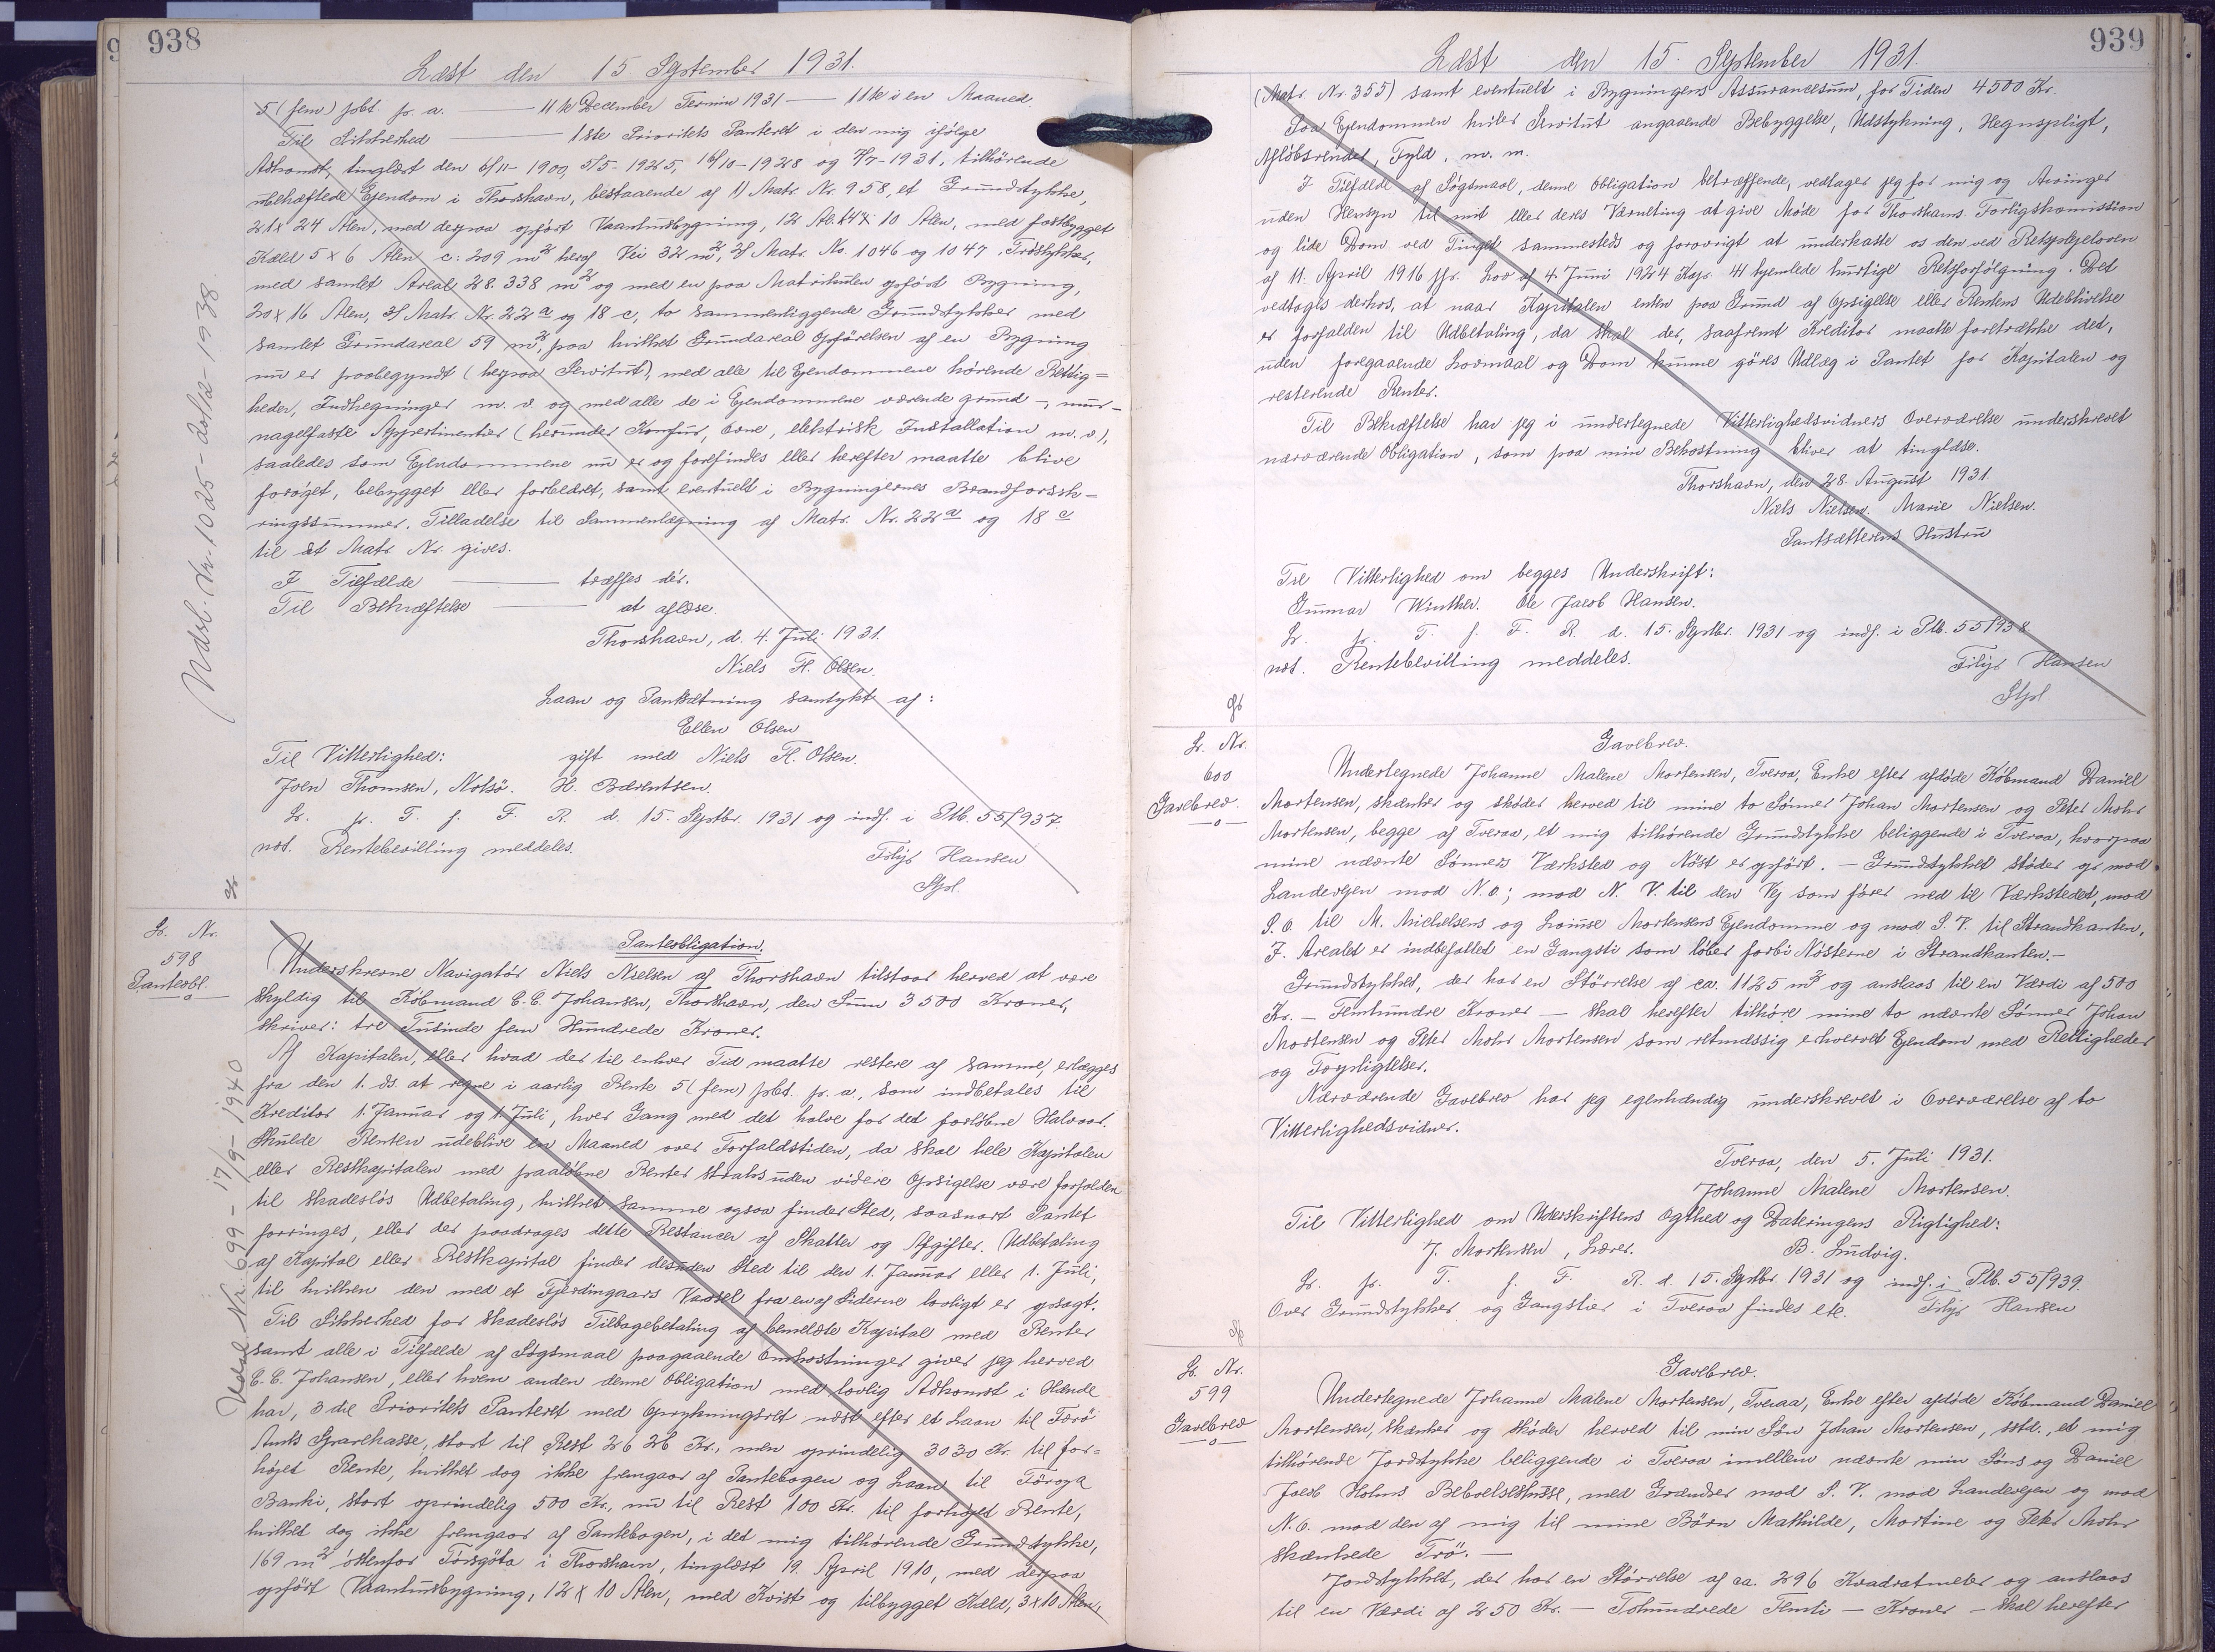 938
Læst den 15 September 1931.
5 (fem) pCt. p. a. — 11te December Termin 1931 — 11te i en Maaned.
Til Sikkerhed — 1ste Prioritets Panteret i den mig ifølge
Adkomst, tinglæst den 6/11-1900, 5/5-1925, 16/10-1928 og 7/7-1931, tilhørende
ubehæftede Ejendom i Thorshavn, bestaaende af 1) Matr. Nr. 958, et Grundstykke,
21 x 24 Alen, med derpaa opført Vaaningsbygning, 12 Al. x 10 Alen, med fastbygget
Kæld 5 x 6 Alen c: 209 m² heraf Vei 32 m², 2) Matr. No. 1046 og 1047, Trøstykker,
med samlet Areal 28.338 m² og med en paa Matrikulen opført Bygning,
20 x 16 Alen, 3) Matr. Nr. 22 a og 18 c, to sammenliggende Grundstykker med
samlet Grundareal 59 m², paa hvilket Grundareal Opførelsen af en Bygning
nu er paabegyndt (herpaa Servitut), med alle til Ejendommene hörende Rettig=
heder, Indhegninger m. v. og med alle de i Ejendommene værende grund-, mur-
nagelfaste Appertinentier (herunder Komfur, Ovne, elektrisk Installation m. v),
saaledes som Ejendommene nu er og forefindes eller herefter maatte blive
forøget, bebygget eller forbedret, samt eventuelt i Bygningernes Brandforsik=
ringssummer. Tilladelse til Sammenlægning af Matr. Nr. 22 a og 18 c
til et Matr. Nr. gives.
I Tilfælde — træffes dér.
Til Bekræftelse — at aflæse.
Thorshavn, d. 4. Juli 1931.
Niels H. Olsen.
Laan og Pantsætning samtykt af:
Ellen Olsen
Til Vitterlighed: gift med Niels H. Olsen.
Joen Thomsen, Nolsö. H. Bærentsen.
L. p. T. f. F. R. d. 15. Septbr. 1931 og indf. i Ptb. 55/937.
not. Rentebevilling meddeles. Filip Hansen
Spl.
Udsl. Nr. 1025 - 20/12 - 1938
L. Nr.
598
Pantobl.
Panteobligation.
Underskrevne Navigatör Niels Nielsen af Thorshavn tilstaar herved at være
skyldig til Köbmand C. C. Johansen, Thorshavn, den Sum 3500 Kroner,
skriver: tre Tusinde fem Hundrede Kroner.
Af Kapitalen, eller hvad der til enhver Tid maatte restere af samme, erlægges
fra den 1. ds. at regne i aarlig Rente 5 (fem) pCt. p. a., som indbetales til
Kreditor 1. Januar og 1. Juli, hver Gang med det halve for det forløbne Halvaar.
Skulde Renten udeblive en Maaned over Forfaldstiden, da skal hele Kapitalen
eller Restkapitalen med paaløbne Renter straks uden videre Opsigelse være forfalden
til skadeslös Udbetaling, hvilket samme ogsaa finder Sted, saasnart Pantet
forringes, eller der paadrages dette Restancer af Skatter og Afgifter. Udbetaling
af Kapital eller Restkapital finder desuden Sted til den 1. Januar eller 1. Juli,
til hvilken den med et Fjerdingaars Varsel fra en af Siderne lovligt er opsagt.
Til Sikkerhed for skadeslös Tilbagebetaling af bemeldte Kapital med Renter
samt alle i Tilfælde af Søgsmaal paagaaende Omkostninger giver jeg herved
C. C. Johansen, eller hvem anden denne Obligation med lovlig Adkomst i Hænde
har, 3die Prioritets Panteret med Oprykningsret næst efter et Laan til Færö
Amts Sparekasse, stort til Rest 2626 Kr., men oprindelig 3030 Kr. til for=
højet Rente, hvilket dog ikke fremgaar af Pantebogen og Laan til Föroya
Banki, stort oprindelig 500 Kr., nu til Rest 100 Kr. til forhøjet Rente,
hvilket dog ikke fremgaar af Pantebogen, i det mig tilhörende Grundstykke,
169 m² östenfor Törsgöta i Thorshavn, tinglæst 19. April 1910, med derpaa
opført Vaaningsbygning, 12 x 10 Alen, med Kvist og tilbygget Kæld, 3 x 10 Alen,
Udsl. Nr. 699 - 17/9 - 1940
939
Læst den 15. September 1931.
(Matr. Nr. 355) samt eventuelt i Bygningens Assurancesum, for Tiden 4500 Kr.
Paa Ejendommen hviler Servitut angaaende Bebyggelse, Udstykning, Hegnspligt,
Afløbsrender, Fyld. m. m.
I Tilfælde af Søgsmaal, denne Obligation betræffende, vedtager jeg for mig og Arvinger
uden Hensyn til mit eller deres Værneting at give Møde for Thorshavns Forligskomission
og lide Dom ved Tinget sammesteds og forøvrigt at underkaste os den ved Retsplejeloven
af 11. April 1916 jfr. Lov af 4. Juni 1924 Kap. 41 hjemlede hurtige Retsforfølgning. Det
vedtages derhos, at naar Kapitalen enten paa Grund af Opsigelse eller Rentens Udeblivelse
er forfalden til Udbetaling, da skal der, saafremt Kreditor maatte foretrække det,
uden foregaaende Lovmaal og Dom kunne göres Udlæg i Pantet for Kapitalen og
resterende Renter.
Til Bekræftelse har jeg i undertegnede Vitterlighedsvidners Overværelse underskrevet
nærværende Obligation, som paa min Bekostning bliver at tinglæse.
Thorshavn, den 28. August 1931.
Niels Nielsen. Marie Nielsen.
Pantsætterens Hustru
Til Vitterlighed om begges Underskrift:
Gunnar Winther. Ole Jacob Hansen.
L. p. T. f. F. R. d. 15. Septbr. 1931 og indf. i Ptb. 55/938
not. Rentebevilling meddeles. Filip Hansen
Spl
L. Nr.
600
Gavebrev.
Gavebrev.
Undertegnede Johanne Malene Mortensen, Tveraa, Enke efter afdøde Köbmand Daniel
Mortensen, skænker og skøder herved til mine to Sönner Johan Mortensen og Peter Mohr
Mortensen, begge af Tveraa, et mig tilhörende Grundstykke beliggende i Tveraa, hvorpaa
mine nævnte Sönners Værksted og Nöst er opfört. — Grundstykket støder op mod
Landevejen mod N. O.; mod N. V. til den Vej som fører ned til Værkstedet, mod
S. O. til M. Michelsens og Louise Mortensens Ejendomme og mod S. V. til Strandkanten.
I Arealet er indbefattet en Gangsti som løber forbi Nösterne i Strandkanten.—
Grundstykket, der har en Störrelse af ca. 1125 m² og anslaas til en Værdi af 500
Kr. — Femhundre Kroner — skal herefter tilhöre mine to nævnte Sönner Johan
Mortensen og Peter Mohr Mortensen som retmæssig erhvervet Ejendom med Rettigheder
og Forpligtelser.
Nærværende Gavebrev har jeg egenhændig underskrevet i Overværelse af to
Vitterlighedsvidner.
Tveraa, den 5. Juli 1931.
Johanne Malene Mortensen.
Til Vitterlighed om Underskriftens Ægthed og Dateringens Rigtighed:
J. Mortensen, Lærer. B. Ludvig.
L. p. T. f. F. R. d. 15. Septbr. 1931 og indf. i Ptb. 55/939.
Over Grundstykker og Gangstier i Tveraa findes etc. Filip Hansen
L. Nr.
599
Gavebrev
Gavebrev.
Undertegnede Johanne Malene Mortensen, Tveraa, Enke efter afdøde Köbmand Daniel
Mortensen, skænker og skøder herved til min Sön Johan Mortensen, sstd., et mig
tilhörende Jordstykke beliggende i Tveraa imellem nævnte min Söns og Daniel
Jacob Holms Beboelseshuse, med Grændser mod S. V. mod Landevejen og mod
N. O. mod den af mig til mine Börn Mathilde, Martine og Peter Mohr
skænkede Trö. —
Jordstykket, der har en Störrelse af ca. 296 Kvadratmeter og anslaas
til en Værdi af 250 Kr. — Tohundrede Femti — Kroner — skal herefter